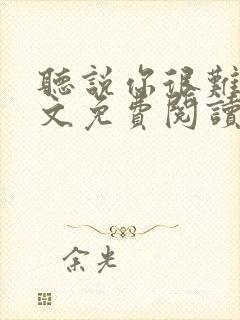 聽說你很難
文免費閱讀
余光